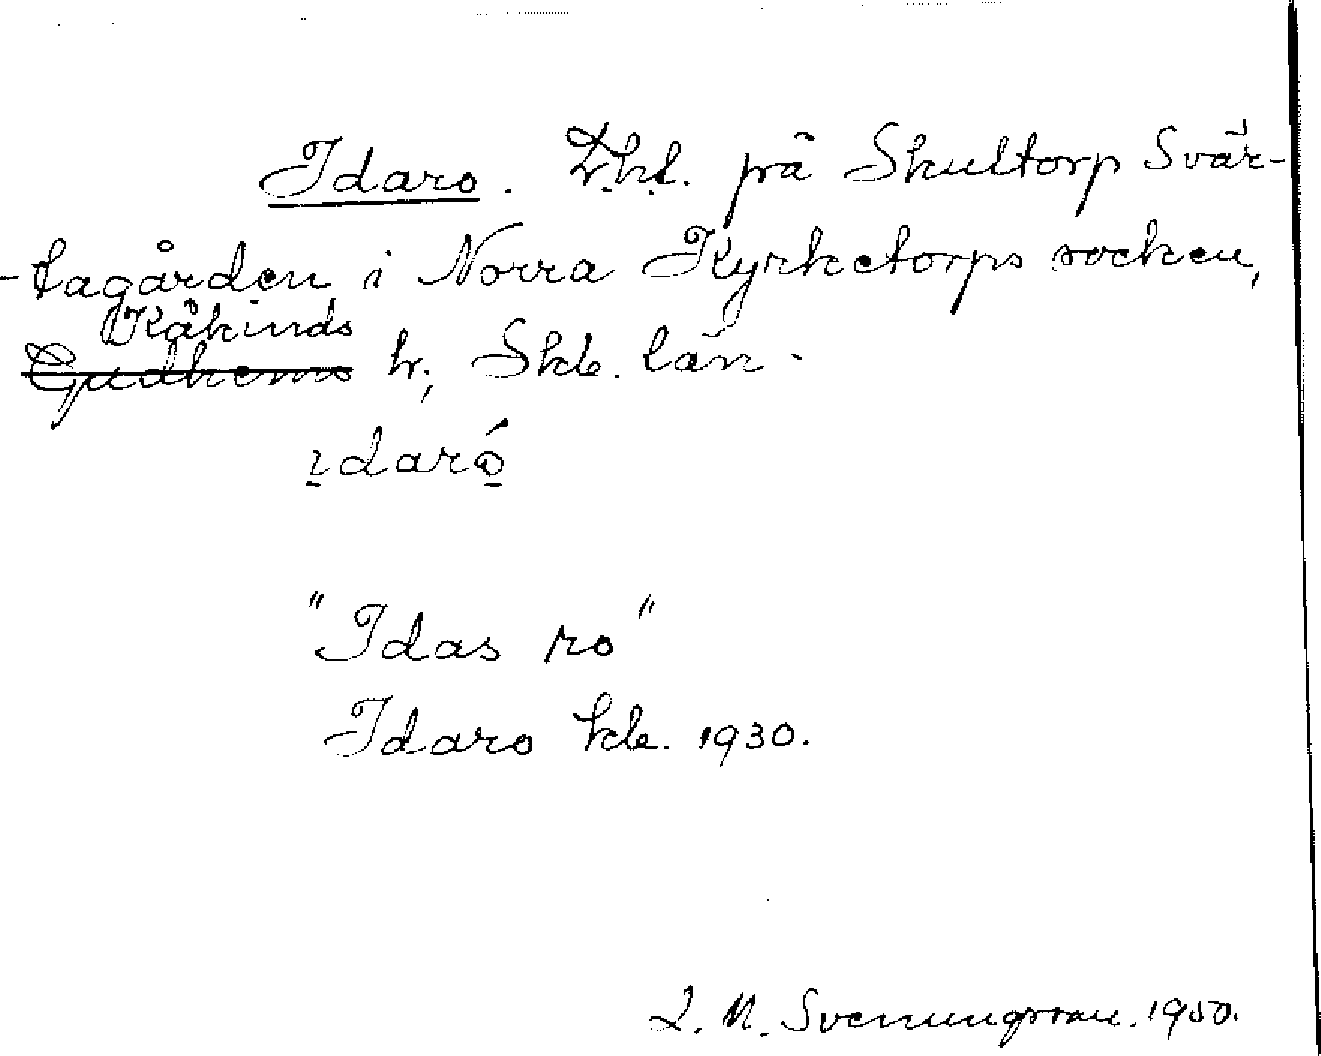 Idaro. Lht. på Skultorp Svär-
-tagården i Norra Kyrketorps socken,
Kåkinds
Gudhems hr, Skb. län.
ɩdaró
"Idas ro"
Idaro kb. 1930.
L. M. Svenungsson. 1950.